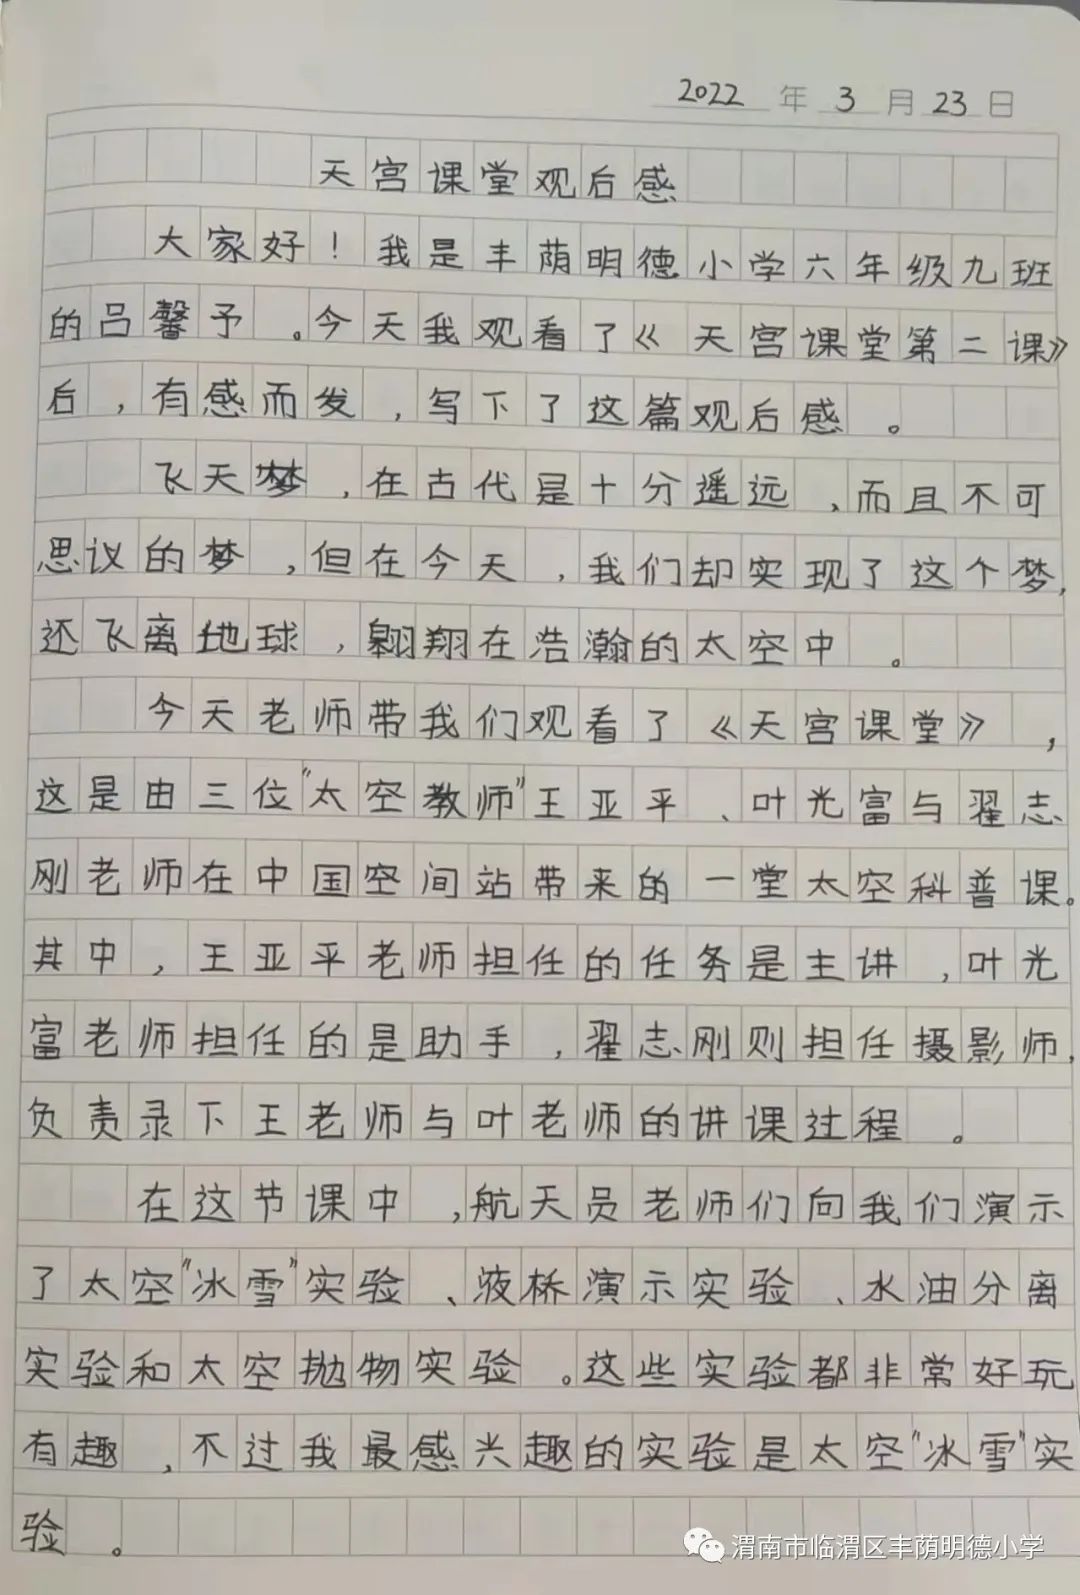 2022年3月23日
天宫课堂观后感
大家好！我是丰荫明德小学六年级九班
的吕馨予。今天我观看了《天宫课堂第二课》
后，有感而发，写下了这篇观后感。
飞天梦，在古代是十分遥远，而且不可
思议的梦，但在今天，我们却实现了这个梦，
还飞离地球，翱翔在浩瀚的太空中。
今天老师带我们观看了《天宫课堂》，
这是由三位“太空教师”王亚平、叶光富与翟志
刚老师在中国空间站带来的一堂太空科普课。
其中，王亚平老师担任的任务是主讲，叶光
富老师担任的是助手，翟志刚则担任摄影师，
负责录下王老师与叶老师的讲课过程。
在这节课中，航天员老师们向我们演示
了太空“冰雪”实验、液桥演示实验、水油分离
实验和太空抛物实验。这些实验都非常好玩
有趣，不过我最感兴趣的实验是太空“冰雪”实
验。
渭南市临渭区丰荫明德小学